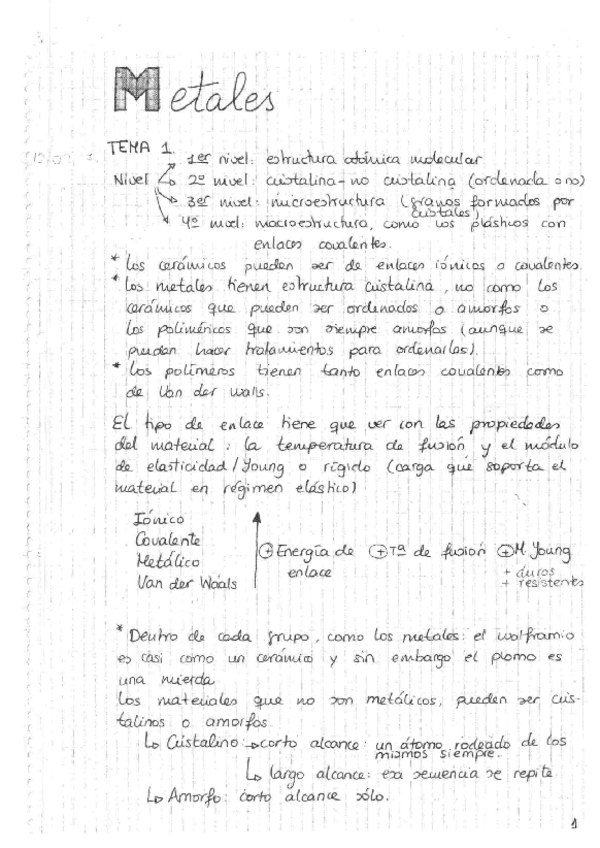 Metales
TEMA 1.
1er nivel: estructura atómica molecular
Nivel 2º nivel: cristalina-no cristalina (ordenada o no)
3er nivel: microestructura (granos formados por cristales)
4º nivel: macroestructura, como los plásticos con
enlaces covalentes.
* Los cerámicos pueden ser de enlaces iónicos o covalentes.
* Los metales tienen estructura cristalina, no como los
cerámicos que pueden ser ordenados o amorfos o
los poliméricos que son siempre amorfos (aunque se
puedan hacer tratamientos para ordenarlos).
* Los polímeros tienen tanto enlaces covalentes como
de Van der walls.
El tipo de enlace tiene que ver con las propiedades
del material: la temperatura de fusión y el módulo
de elasticidad/Young o rígido (carga que soporta el
material en régimen elástico)
Iónico
Covalente
Metálico
Van der Waals
+ Energía de enlace
+ Tª de fusión
+ M. Young
+ duros
+ resistentes
* Dentro de cada grupo, como los metales: el wolframio
es casi como un cerámico y sin embargo el plomo es
una mierda
Los materiales que no son metálicos, pueden ser cris-
talinos o amorfos
↳ Cristalino: → corto alcance: un átomo rodeado de los
mismos siempre.
↳ largo alcance: esa secuencia se repite
↳ Amorfo: corto alcance sólo.
1